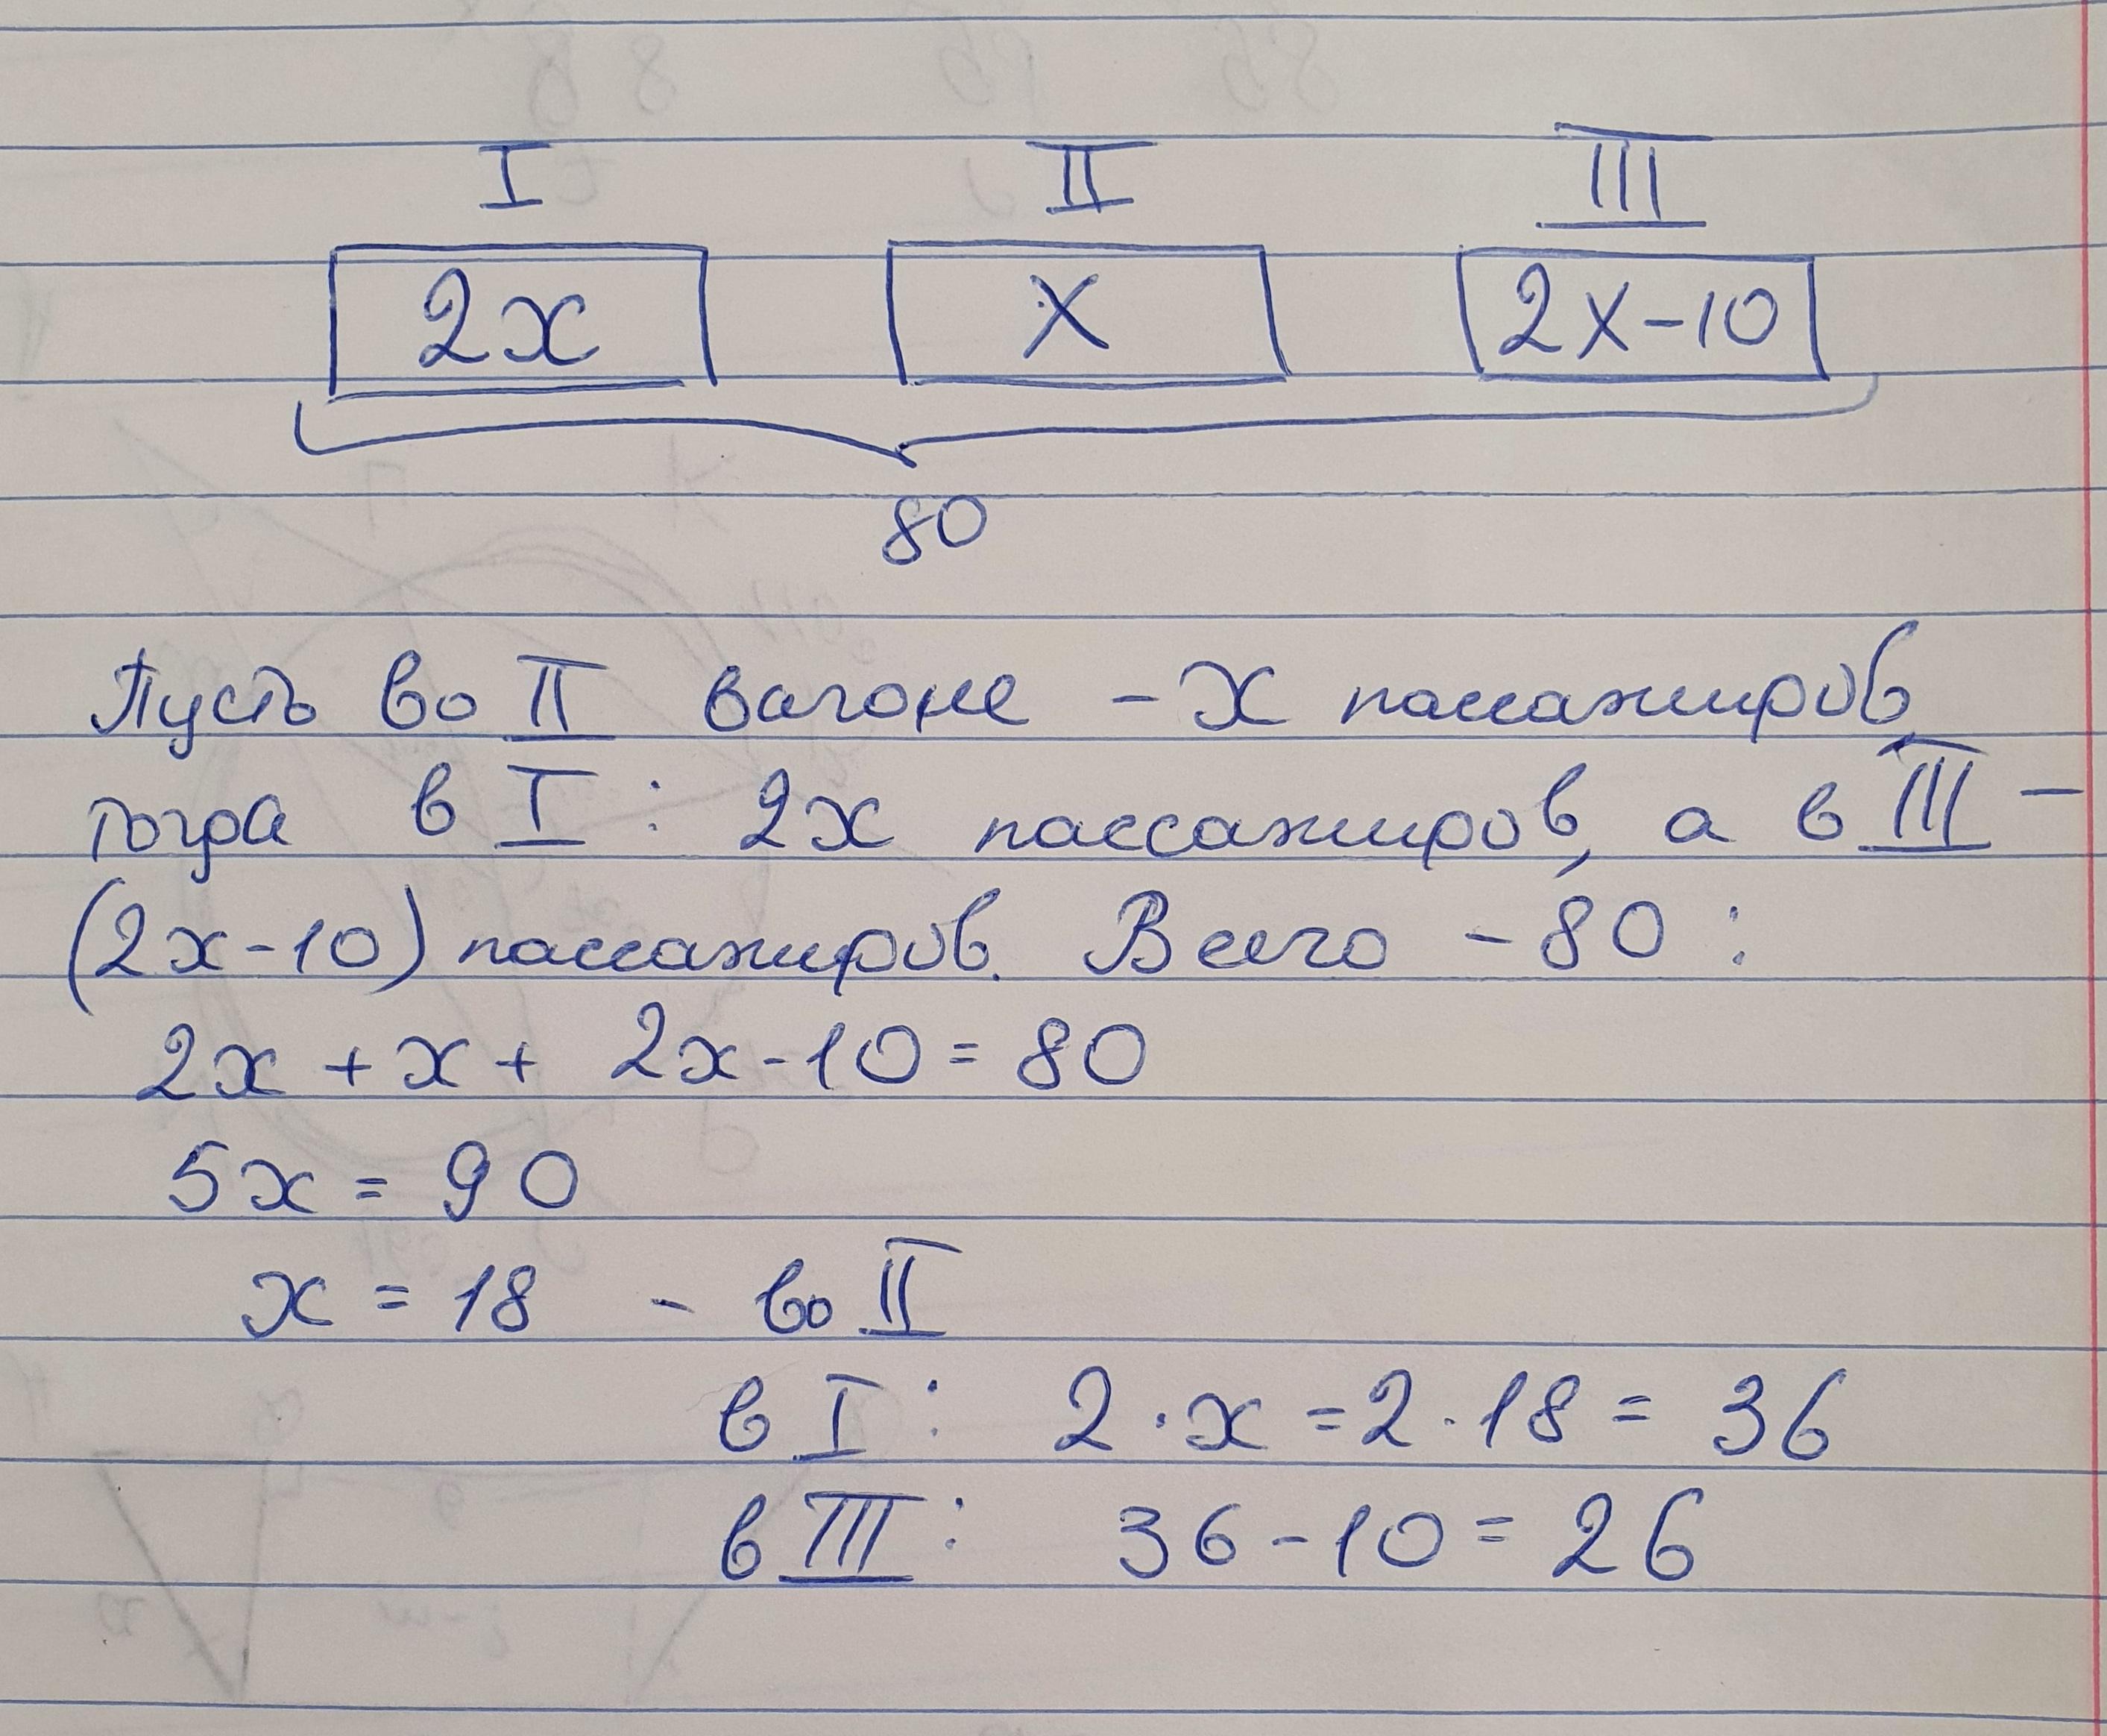 I II III
2x x 2x-10
80
Пусть во II вагоне - x пассажиров,
тогда в I : 2x пассажиров, а в III -
(2x-10) пассажиров. Всего - 80 :
2x + x + 2x-10 = 80
5x = 90
x = 18 - во II
в I : 2 · x = 2 · 18 = 36
в III : 36 - 10 = 26